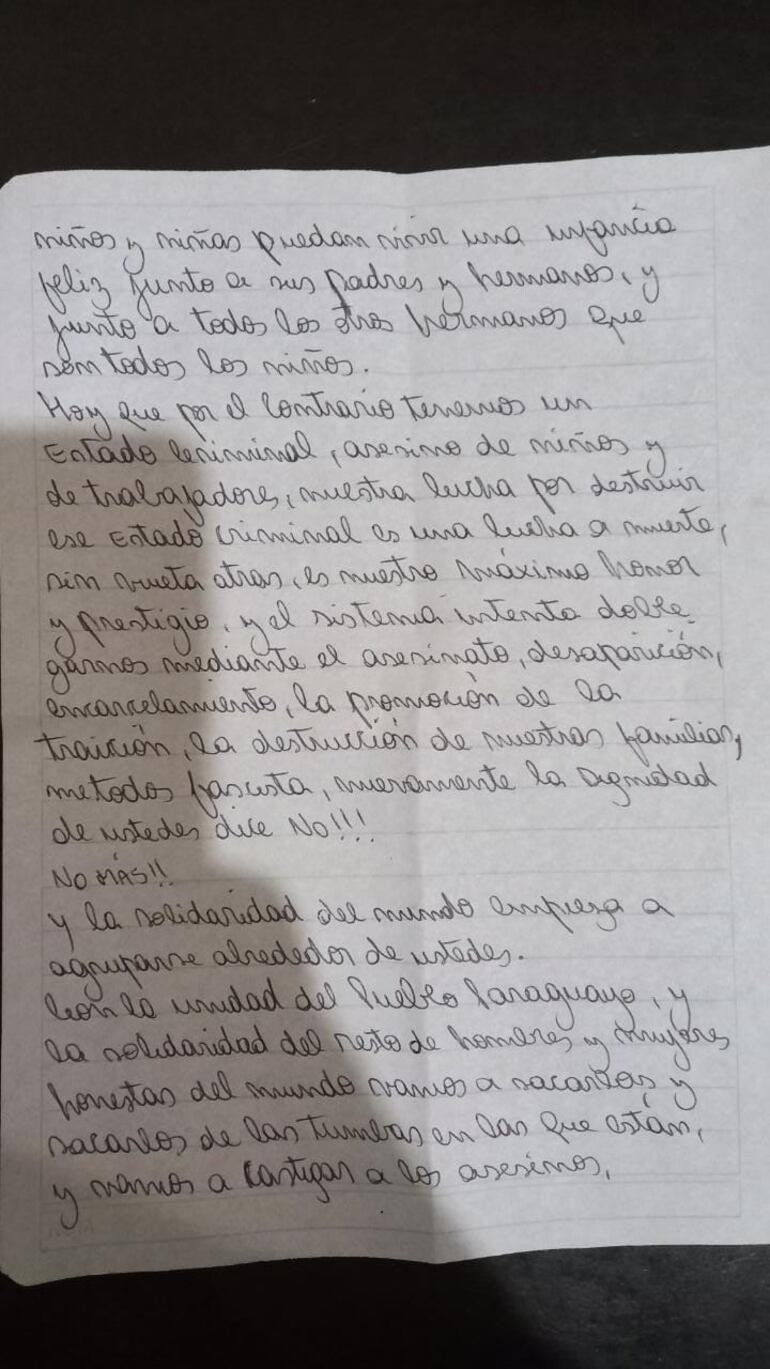 niños y niñas puedan vivir una infancia
feliz junto a sus padres y hermanos, y
junto a todos los otros hermanos que
son todos los niños.
Hoy que por el contrario tenemos un
Estado criminal, asesino de niños y
de trabajadores, nuestra lucha por destruir
ese Estado criminal es una lucha a muerte,
sin vueta atras, es nuestro máximo honor
y prestigio, y el sistema intenta doble-
garnos mediante el asesinato, desaparición,
encarcelamiento, la promoción de la
traición, la destrucción de nuestras familias,
metodos fascista, nuevamente la Dignidad
de ustedes dice No!!!
NO MÁS!!
y la solidaridad del mundo empieza a
agruparse alrededor de ustedes.
Con la unidad del Pueblo Paraguayo, y
la solidaridad del resto de hombres y mujeres
honestas del mundo vamos a sacarlas y
sacarlos de las tumbas en las que están,
y vamos a castigar a los asesinos,